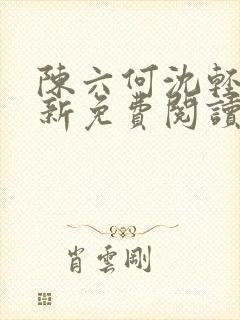 陳六何沈輕
新免費閱讀
肖雲剛